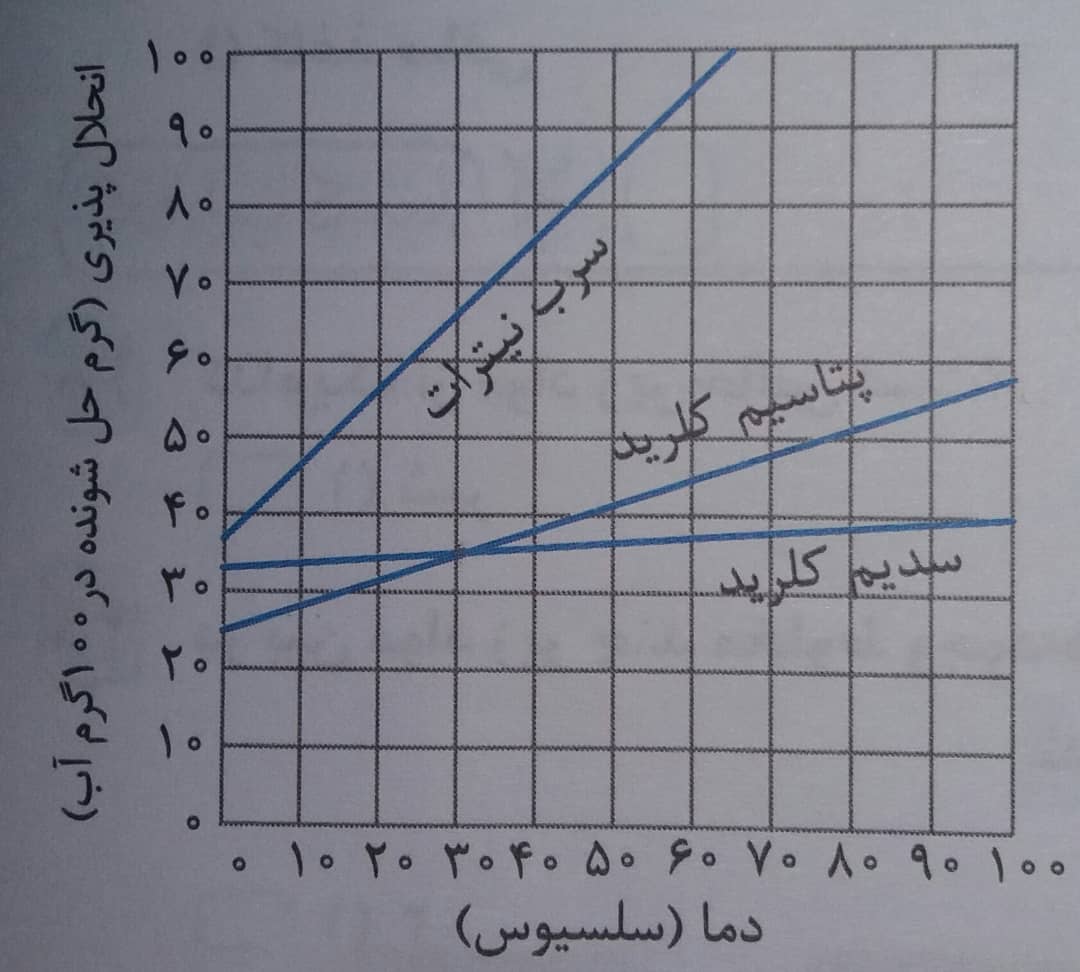 انحلال پذیری (گرم حل شونده در ۱۰۰گرم آب)
۱۰۰
۹۰
۸۰
۷۰
۶۰
۵۰
۴۰
۳۰
۲۰
۱۰
۰
سرب نیترات
پتاسیم کلرید
سدیم کلرید
۰ ۱۰ ۲۰ ۳۰ ۴۰ ۵۰ ۶۰ ۷۰ ۸۰ ۹۰ ۱۰۰
دما (سلسیوس)